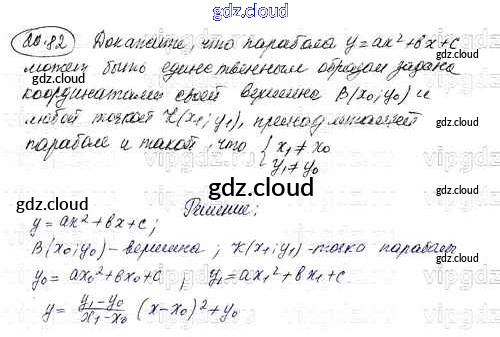 gdz.cloud
20.82 Докажите, что парабола y=ax²+bx+c
может быть единственным образом задана
координатами своей вершины B(x₀;y₀) и
любой точкой K(x₁;y₁), принадлежащей
параболе и такой, что { x₁≠x₀
y₁≠y₀
gdz.cloud
Решение:
y=ax²+bx+c;
B(x₀;y₀)-вершина; K(x₁;y₁)-точка параболы
y₀=ax₀²+bx₀+c; y₁=ax₁²+bx₁+c
y= (y₁-y₀)/(x₁-x₀) (x-x₀)²+y₀
gdz.cloud